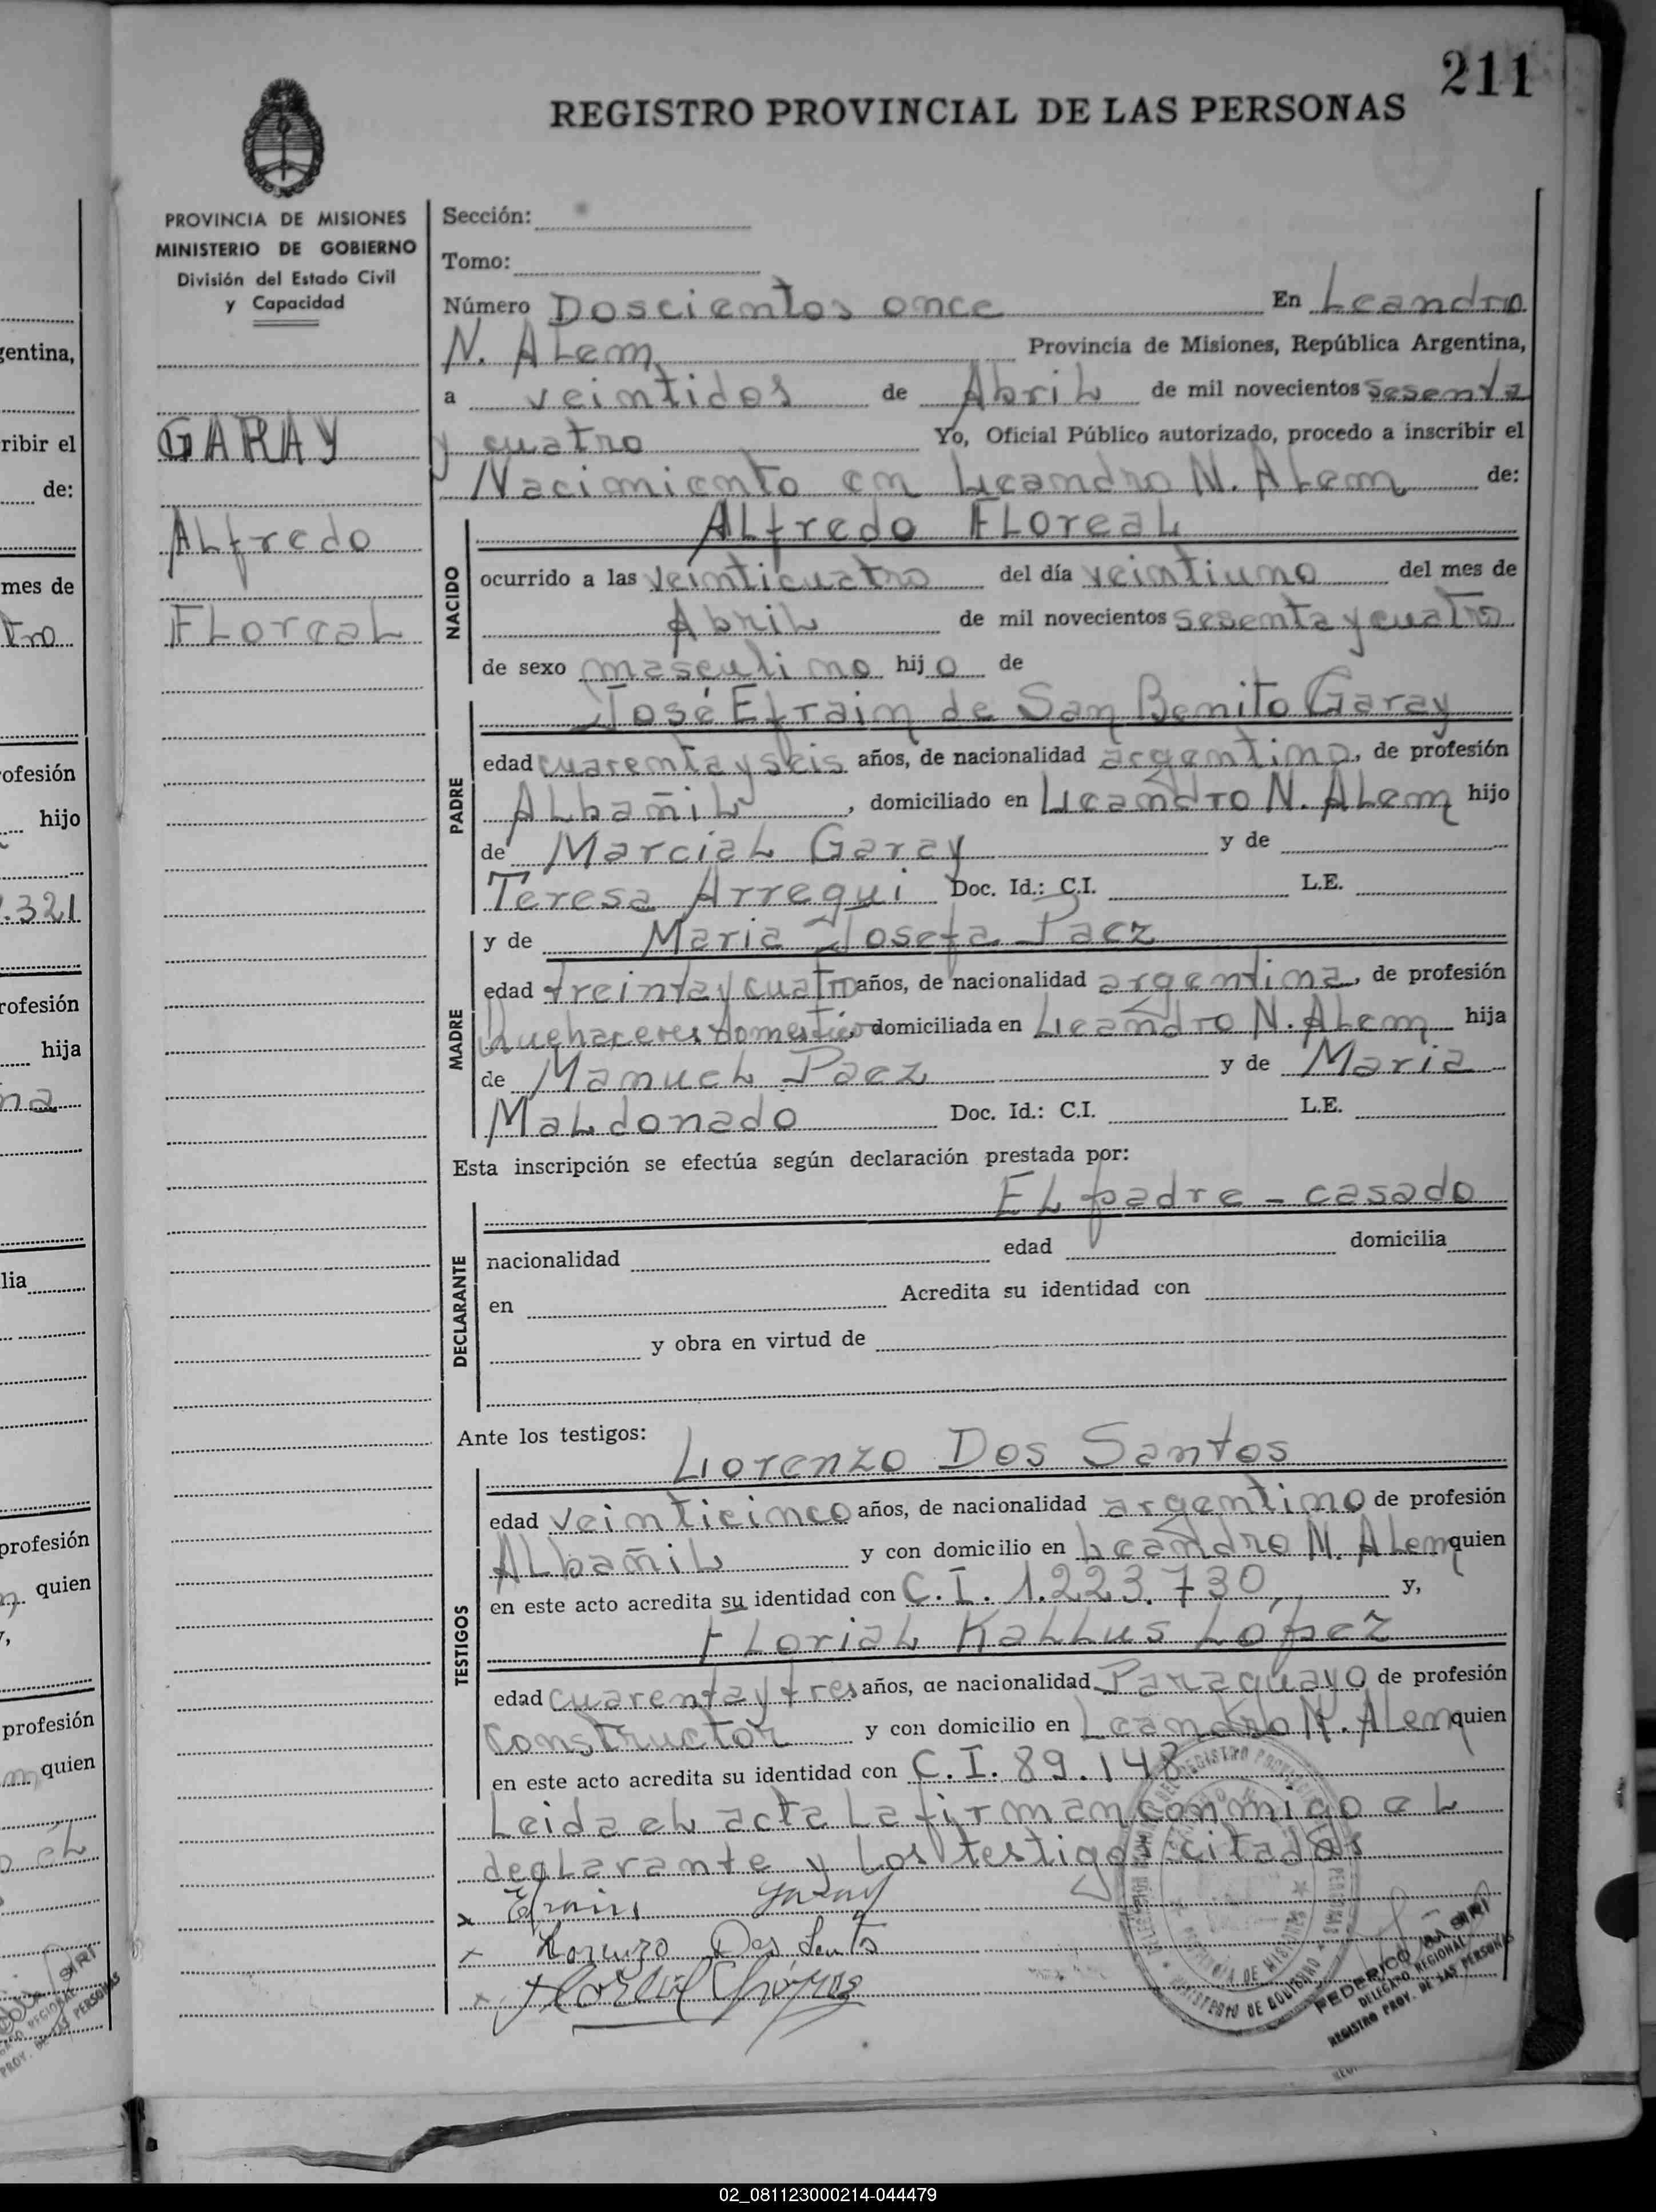 211
REGISTRO PROVINCIAL DE LAS PERSONAS
PROVINCIA DE MISIONES
MINISTERIO DE GOBIERNO
División del Estado Civil
y Capacidad
GARAY
Alfredo
Floreal
Sección:
Tomo:
Número Doscientos once En Leandro
N. Alem Provincia de Misiones, República Argentina,
a veintidos de Abril de mil novecientos sesenta
y cuatro Yo, Oficial Público autorizado, procedo a inscribir el
Nacimiento en Leandro N. Alem de:
NACIDO
Alfredo Floreal
ocurrido a las veinticuatro del día veintiuno del mes de
Abril de mil novecientos sesenta y cuatro
de sexo masculino hijo de
PADRE
José Efraim de San Benito Garay
edad cuarenta y seis años, de nacionalidad argentino, de profesión
Albañil, domiciliado en Leandro N. Alem hijo
de Marcial Garay y de
Teresa Arregui Doc. Id.: C.I. L.E.
MADRE
y de Maria Josefa Paez
edad treinta y cuatro años, de nacionalidad argentina, de profesión
Quehaceres domesticos, domiciliada en Leandro N. Alem hija
de Manuel Paez y de Maria
Maldonado Doc. Id.: C.I. L.E.
Esta inscripción se efectúa según declaración prestada por:
DECLARANTE
El padre - casado
nacionalidad edad domicilia
en Acredita su identidad con
y obra en virtud de
Ante los testigos:
TESTIGOS
Lorenzo Dos Santos
edad veinticinco años, de nacionalidad argentino de profesión
Albañil y con domicilio en Leandro N. Alem quien
en este acto acredita su identidad con C.I. 1.223.730, y,
Florial Kallus López
edad cuarenta y tres años, de nacionalidad Paraguayo de profesión
Constructor y con domicilio en Leandro N. Alem quien
en este acto acredita su identidad con C.I. 89.148
Leida el acta la firman conmigo el
declarante y los testigos citados
x Efrain Garay
x Lorenzo Dos Santos
x
FEDERICO SIRI
DELEGADO REGIONAL
REGISTRO PROV. DE LAS PERSONAS
02_081123000214-044479